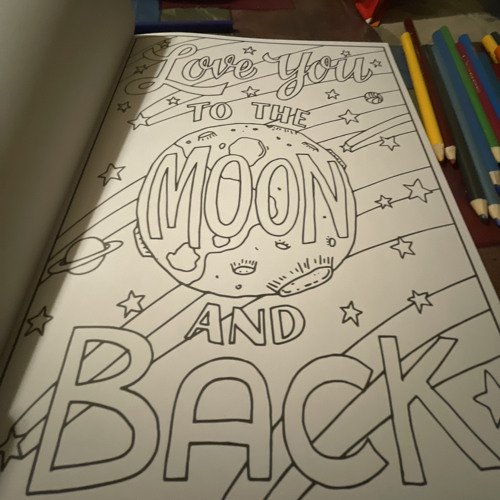 Love You
TO THE
MOON
AND
BACK